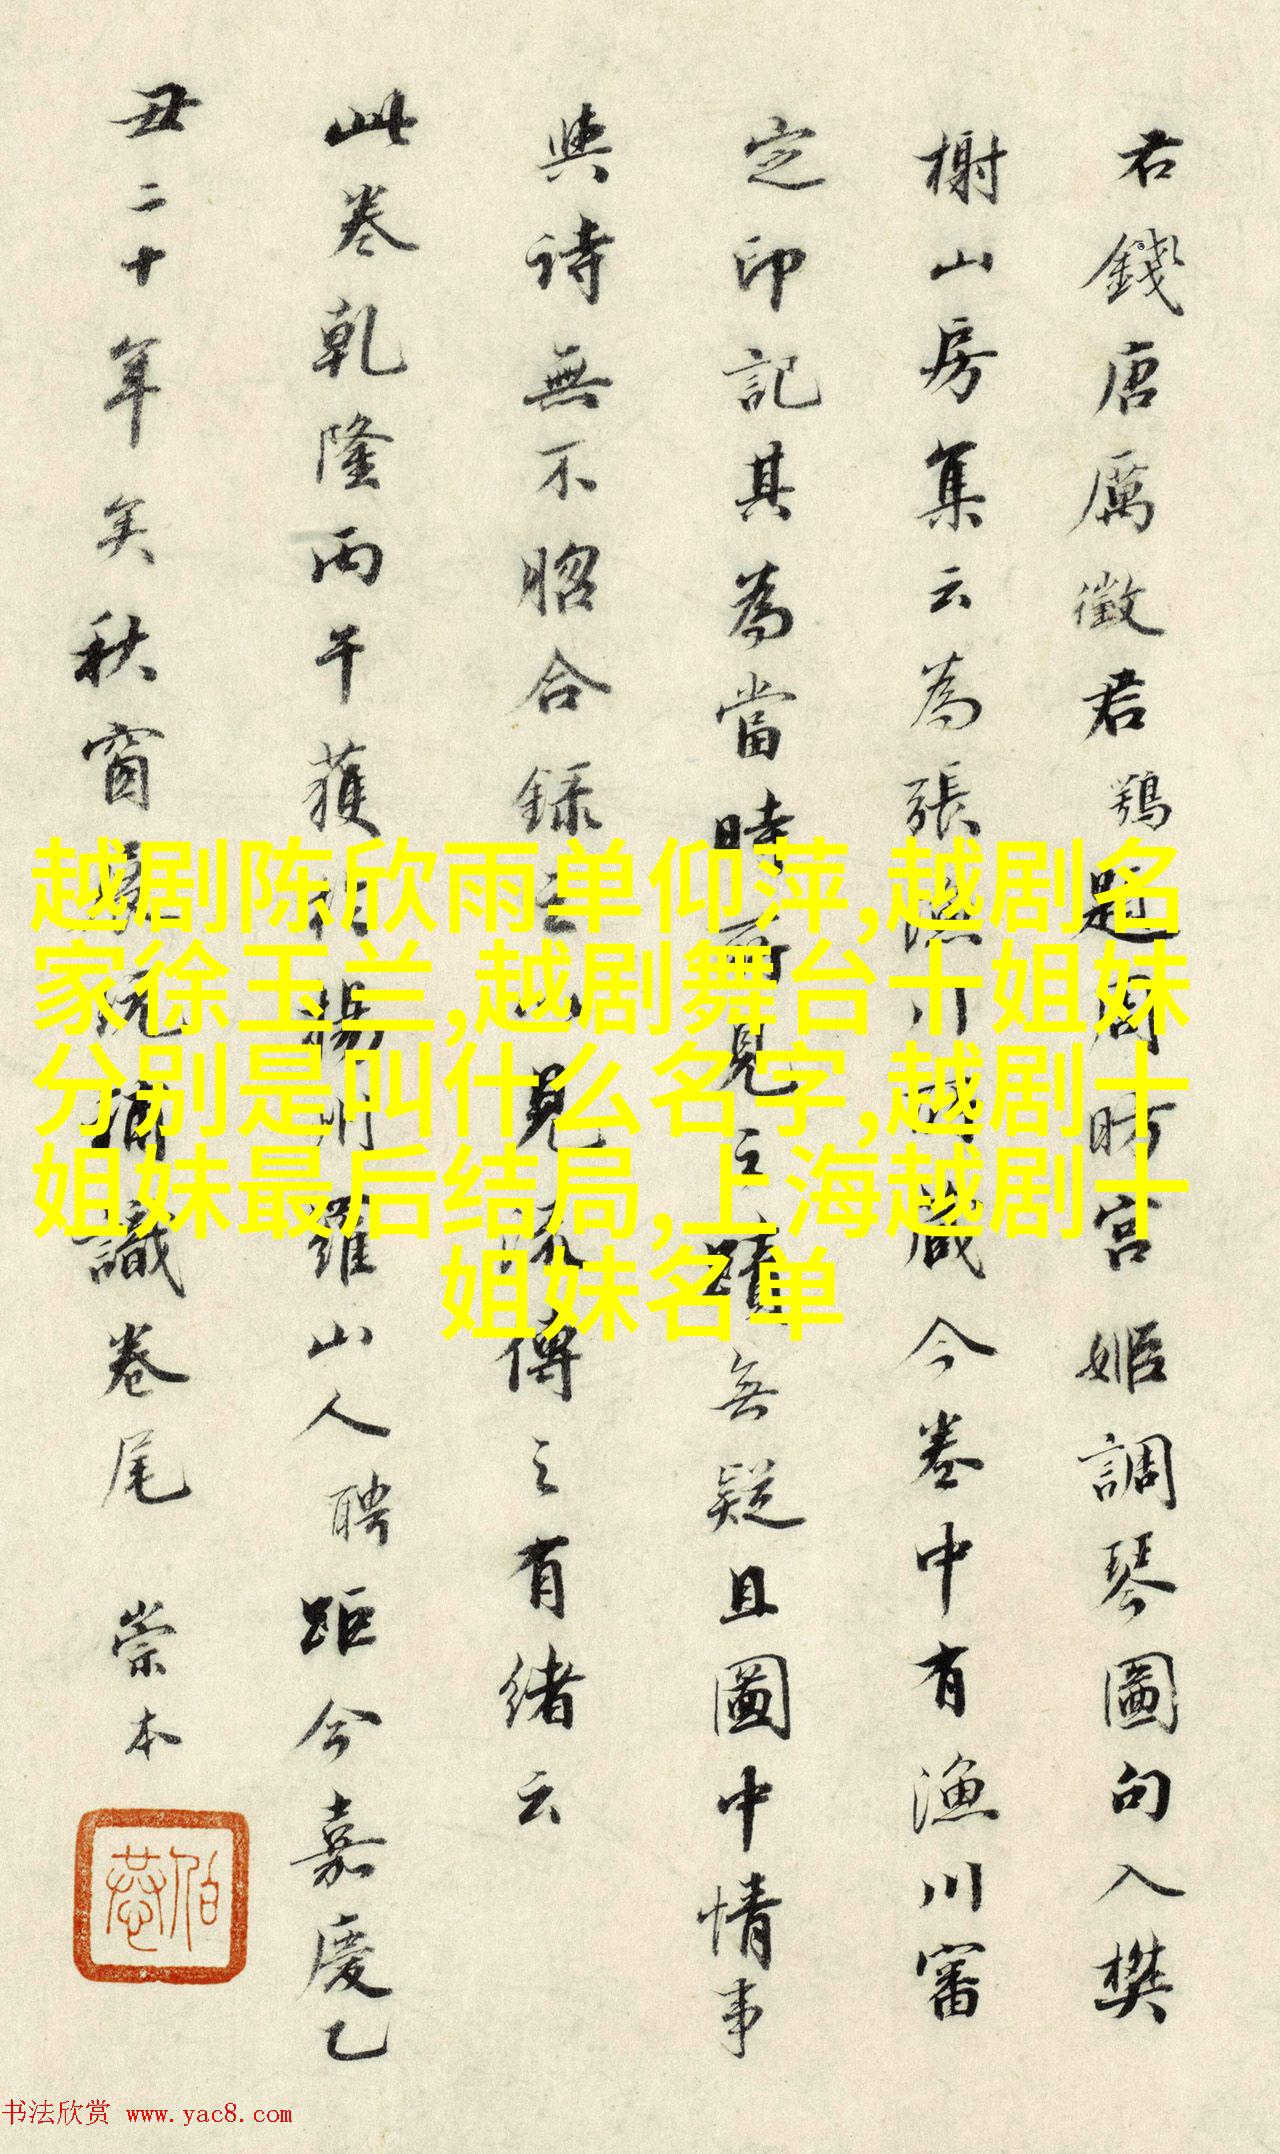 君錢唐厲徵君鶚題周昉宮姬調琴圖句入樊
榭山房集云為張漁川所藏今卷中有漁川審
定印記其為當時所見之蹟無疑且圖中情事
與詩無不脗合錄之以見流傳之有緒云
此卷乾隆丙午獲於揚州羅山人聘距今嘉慶乙
丑二十年矣秋窗展玩摘識卷尾 崇本
越剧陈欣雨单仰萍,越剧名
家徐玉兰,越剧舞台十姐妹
分别是叫什么名字,越剧十
姐妹最后结局,上海越剧十
姐妹名单
书法欣赏 www.yac8.com